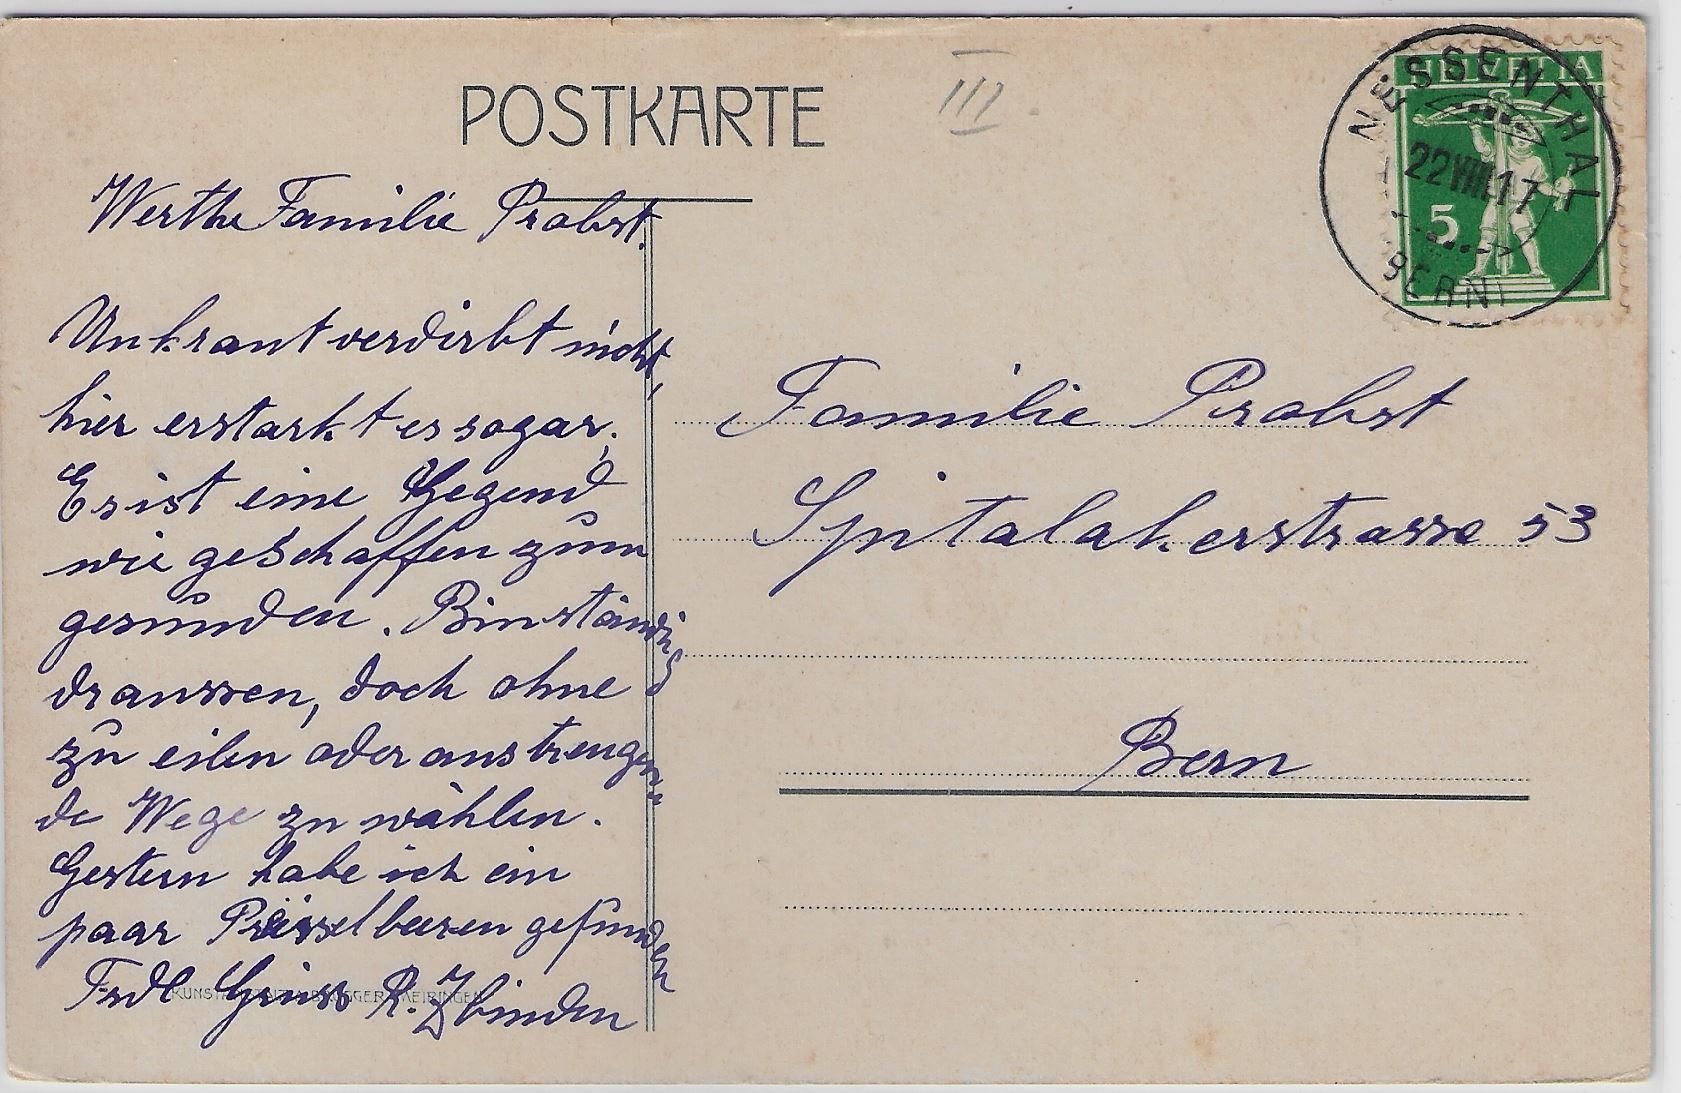 POSTKARTE
III
Werthe Familie Probst.
Unkraut verdirbt nicht,
hier erstarkt es sogar;
Es ist eine Gegend
wie geschaffen zum
gesunden. Bin ständig
draussen, doch ohne
zu eilen oder anstrengen-
de Wege zu wählen.
Gestern habe ich ein
paar Preisselbeeren gefunden
Frdl Gruss R. Zbinden
KUNSTANSTALT BRÜGGER MEIRINGEN
HELVETIA
5
NESSENTHAL
22.VIII.17
(BERN)
Familie Probst
Spitalakerstrasse 53
Bern